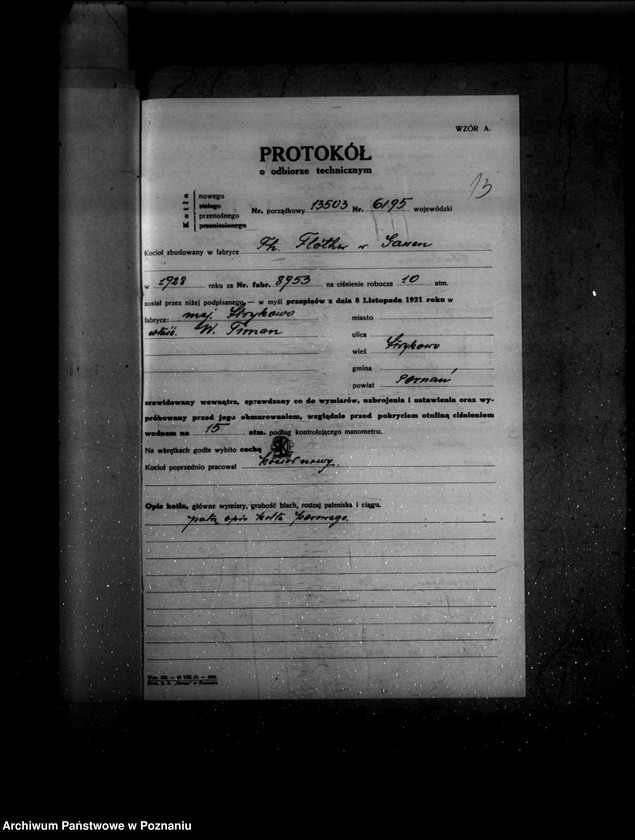 WZÓR A.
PROTOKÓŁ
o odbiorze technicznym
13
Kotła
nowego
stałego
przenośnego
przeniesionego
Nr. porządkowy 13503 Nr. 6195 wojewódzki
Kocioł zbudowany w fabryce Th. Flöther w Gassen
w 1928 roku za Nr. fabr. 8953 na ciśnienie robocze 10 atm.
został przez niżej podpisanego, — w myśl przepisów z dnia 8 Listopada 1921 roku w
fabryce: maj. Strykowo miasto
właśc. W. Timan
ulica
wieś Strykowo
gmina
powiat Poznań
zrewidowany wewnątrz, sprawdzony co do wymiarów, uzbrojenia i ustawienia oraz wy-
próbowany przed jego obmurowaniem, względnie przed pokryciem otuliną ciśnieniem
wodnem na 15 atm. podług kontrolującego manometru.
Na wkrętkach godła wybito cechę
Kocioł poprzednio pracował kocioł nowy.
Opis kotła, główne wymiary, grubość blach, rodzaj paleniska i ciągu,
patrz opis kotła parowego.
Archiwum Państwowe w Poznaniu